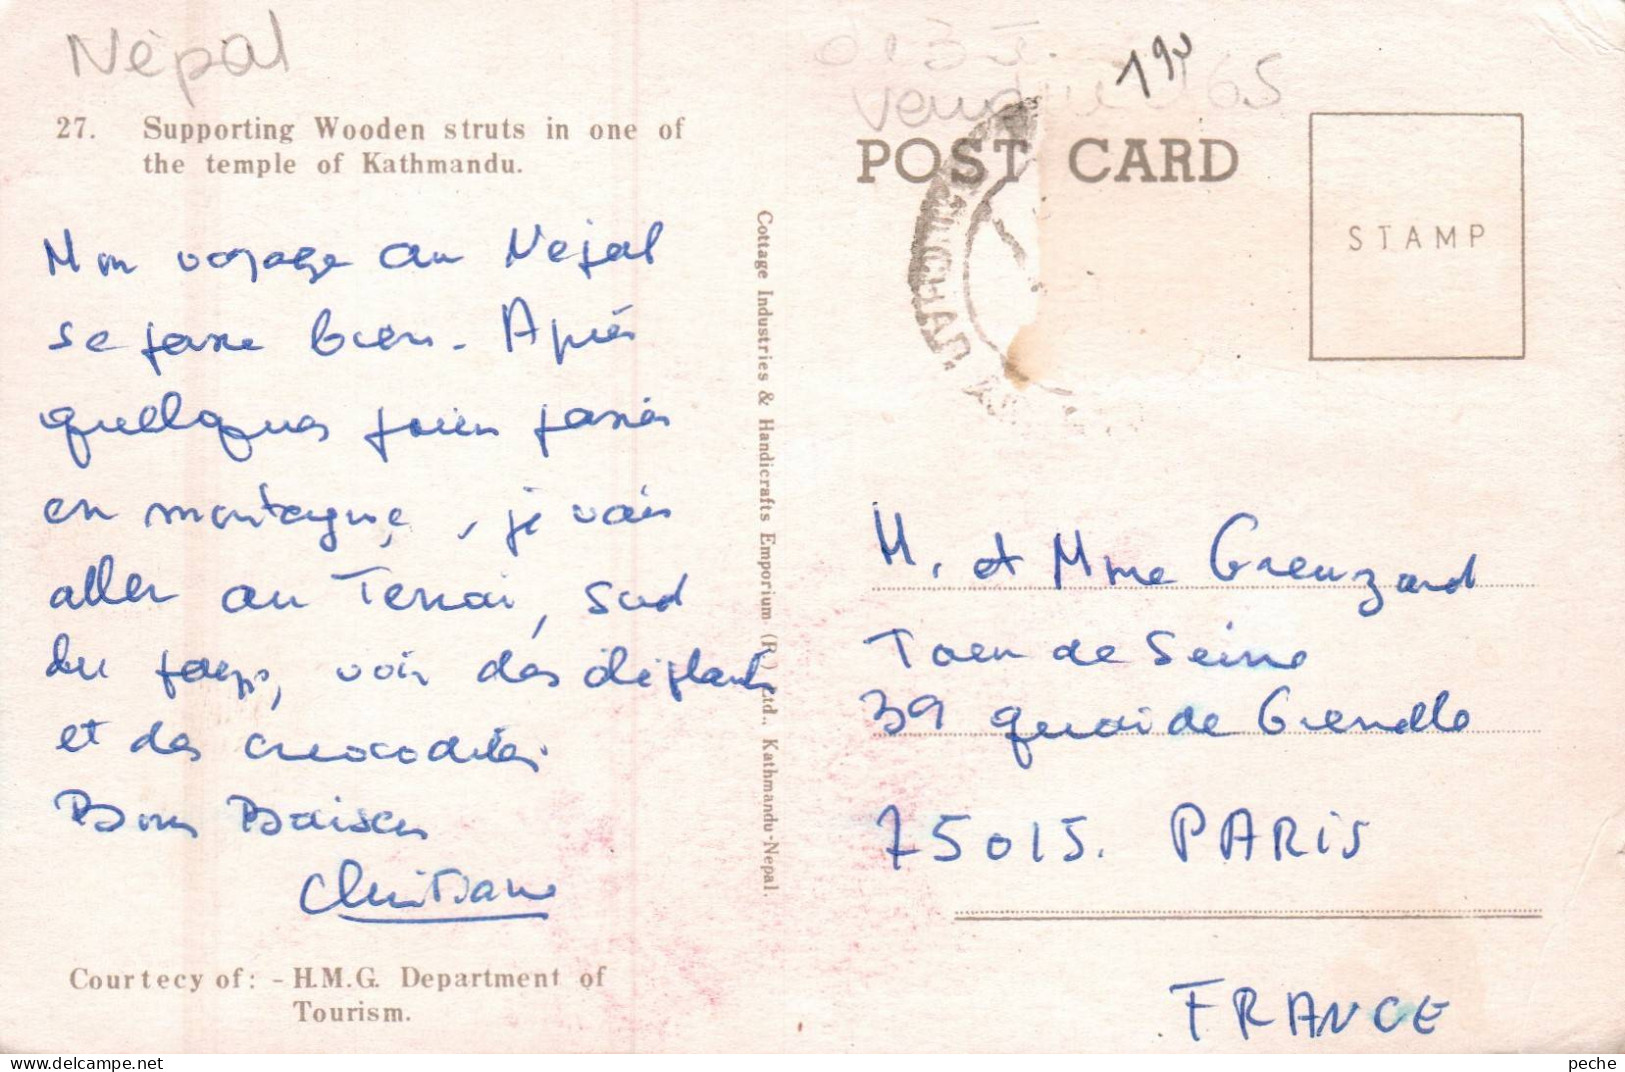 Népal
27. Supporting Wooden struts in one of
the temple of Kathmandu.
Mon voyage au Népal
se passe bien. Après
quelques jours passés
en montagne, je vais
aller au Terrai, sud
du pays, voir des éléphants
et des crocodiles.
Bons Baisers
Christiane
Courtecy of: - H.M.G. Department of
Tourism.
Cottage Industries & Handicrafts Emporium (R.) Ltd., Kathmandu-Nepal.
190
65
POST CARD
STAMP
M. et Mme Greuzard
Tour de Seine
39 quai de Grenelle
75015. PARIS
FRANCE
peche